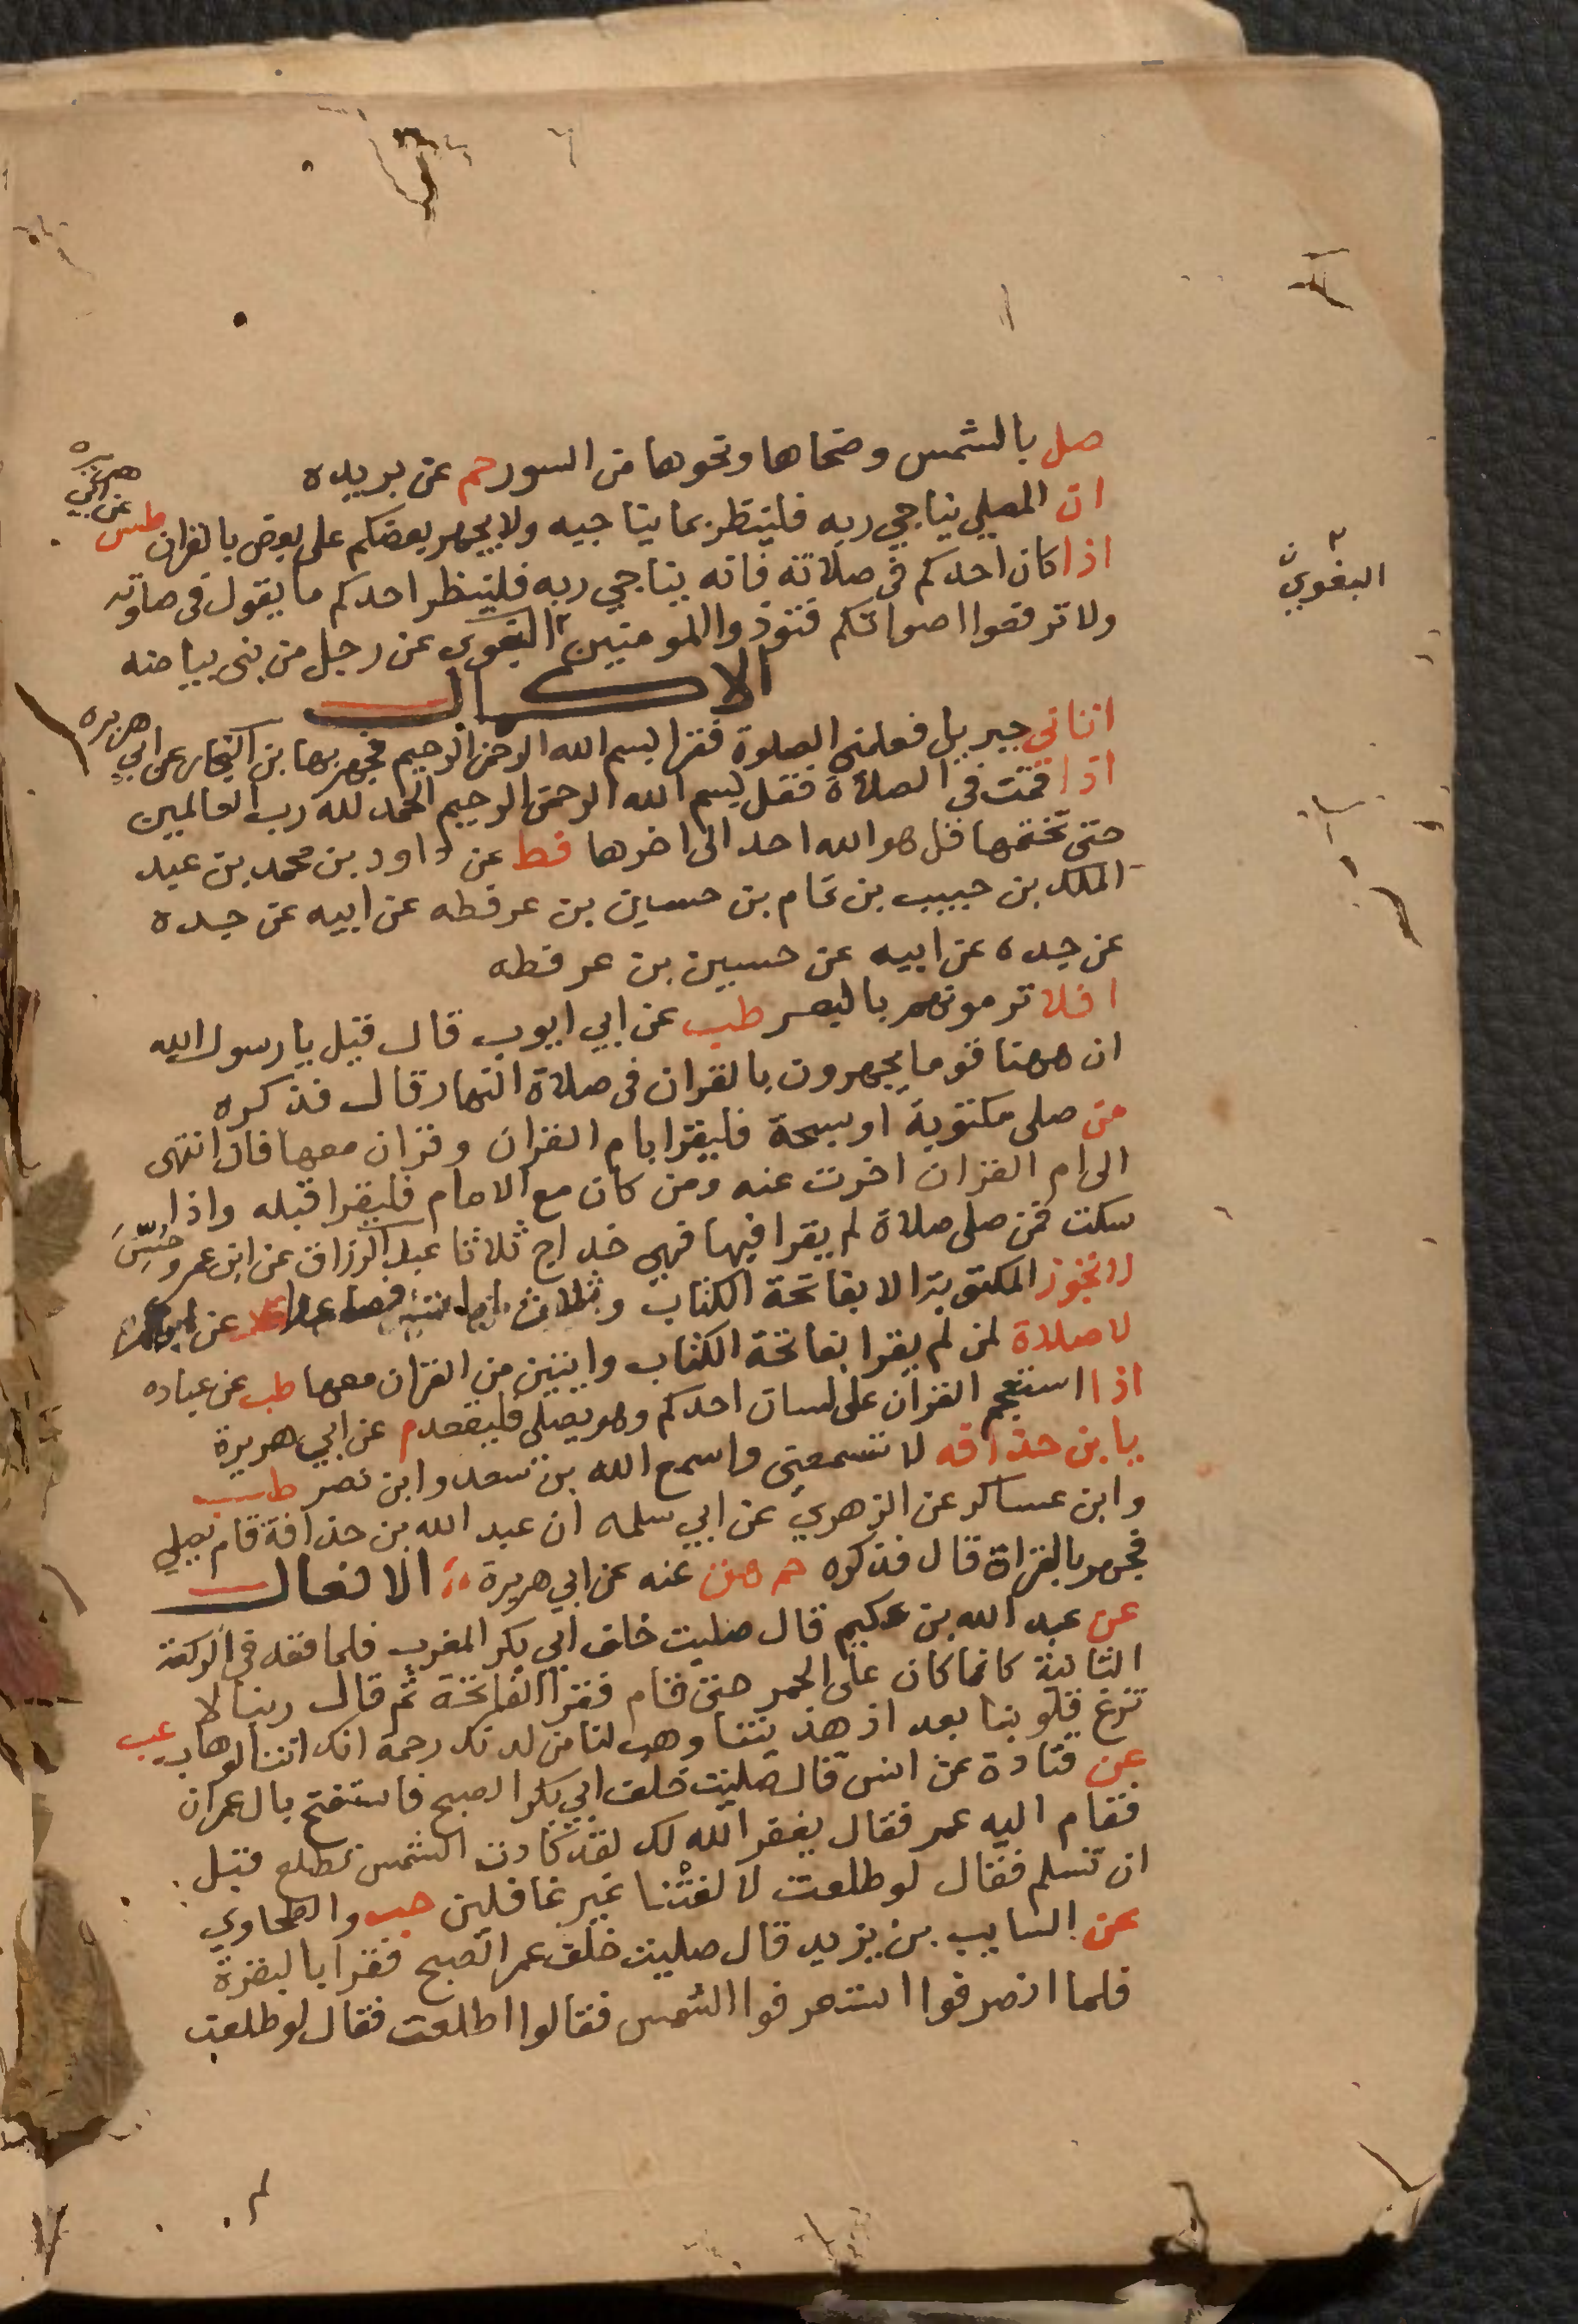 صل بالشمس وضحاها ونحوها من السور حم عن بريده
ان المصلي يناجي ربه فلينظر بما يناجيه ولا يجهر بعضكم على بعض بالقران طس عن ابي هريره
اذا كان احدكم في صلاته فانه يناجي ربه فلينظر احدكم ما يقول في صلوته
ولا ترفعوا اصواتكم فتوذوا المومنين البغوي عن رجل من بني بياضه
البغوي
الاكمال
اتاني جبريل فعلمني الصلوة فقرا بسم الله الرحمن الرحيم فجهر بها بن النجار عن ابي هريره
اذا قمت في الصلاة فقل بسم الله الرحمن الرحيم الحمد لله رب العالمين
حتى تختمها قل هو الله احد الى اخرها قط عن داود بن محمد بن عبد
الملك بن حبيب بن تمام بن حسين بن عرفطه عن ابيه عن جده
عن جده عن ابيه عن حسين بن عرفطه
افلا ترمونهم بالبعر طب عن ابي ايوب قال قيل يا رسول الله
ان ههنا قوما يجهرون بالقران في صلاة النهار قال فذكره
من صلى مكتوبة او سبحة فليقرا بام القران وقران معها فان انتهى
الى ام القران اخرت عنه ومن كان مع الامام فليقرا قبله واذا
سكت فمن صلى صلاة لم يقرا فيها فهي خداج ثلاثا عبد الرزاق عن ابن عمرو حسن
لا تجوز المكتوبة الا بفاتحة الكتاب وثلاث ايات فصاعدا عد عن ابن عمر
لا صلاة لمن لم يقرا بفاتحة الكتاب وايتين من القران معها طب عن عباده
اذا استعجم القران على لسان احدكم وهو يصلي فليقعد م عن ابي هريرة
يا بن حذافه لا تسمعني واسمع الله بن سعد وابن نصر طب
وابن عساكر عن الزهري عن ابي سلمه ان عبد الله بن حذافة قام يصلي
فجهر بالقراة قال فذكره حم هق عنه عن ابي هريرة الافعال
عن عبد الله بن عكيم قال صليت خلف ابي بكر المغرب فلما قعد في الركعة
الثانية كانما كان على الجمر حتى قام فقرا الفاتحة ثم قال ربنا لا
تزغ قلوبنا بعد اذ هديتنا وهب لنا من لدنك رحمة انك انت الوهاب عب
عن قتادة عن انس قال صليت خلف ابي بكر الصبح فاستفتح بال عمران
فقام اليه عمر فقال يغفر الله لك لقد كادت الشمس تطلع قبل
ان تسلم فقال لو طلعت لالفتنا غير غافلين حب والطحاوي
عن السايب بن يزيد قال صليت خلف عمر الصبح فقرا بالبقرة
فلما انصرفوا استشرفوا الشمس فقالوا اطلعت فقال لو طلعت